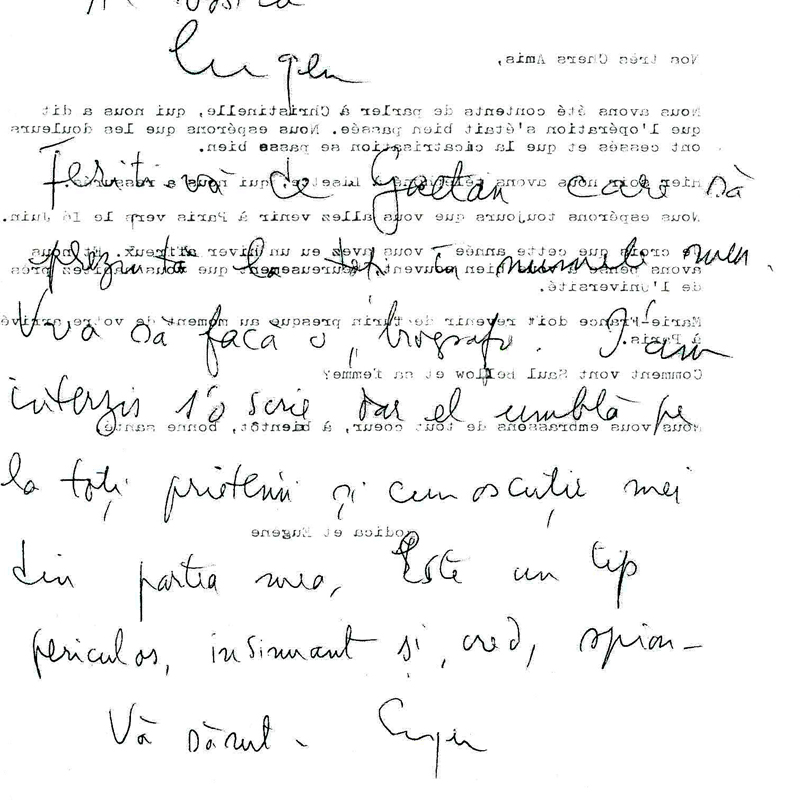 Eugen
Nos très Chers Amis,
Nous avons été contents de parler à Christinelle, qui nous a dit
que l'opération s'était bien passée. Nous espérons que les douleurs
ont cessés et que la cicatrisation se passe bien.
Feriți-vă de Gaetan care să
hier soir nous avons téléphoné à Lisette, qui nous a rassurés.
Nous espérons toujours que vous allez venir à Paris vers le 16 Juin.
prezintă la toți în numele meu.
Je crois que cette année vous avez eu un hiver affreux. Et nous
avons pensé bien souvent, heureusement que vous habitez près
de l'Université.
Vrea să facă o biografie. I-am
Marie-France doit revenir de Turin presque au moment de votre arrivée
à Paris.
Comment vont Saul Bellow et sa femme?
interzis s'o scrie dar el umblă pe
Nous vous embrassons de tout coeur, à bientôt, bonne santé,
la toți prietenii și cunoscuții mei
Rodica et Eugene
din partea mea, Este un tip
periculos, insinuant și, cred, spion-
Vă sărut. Eugen